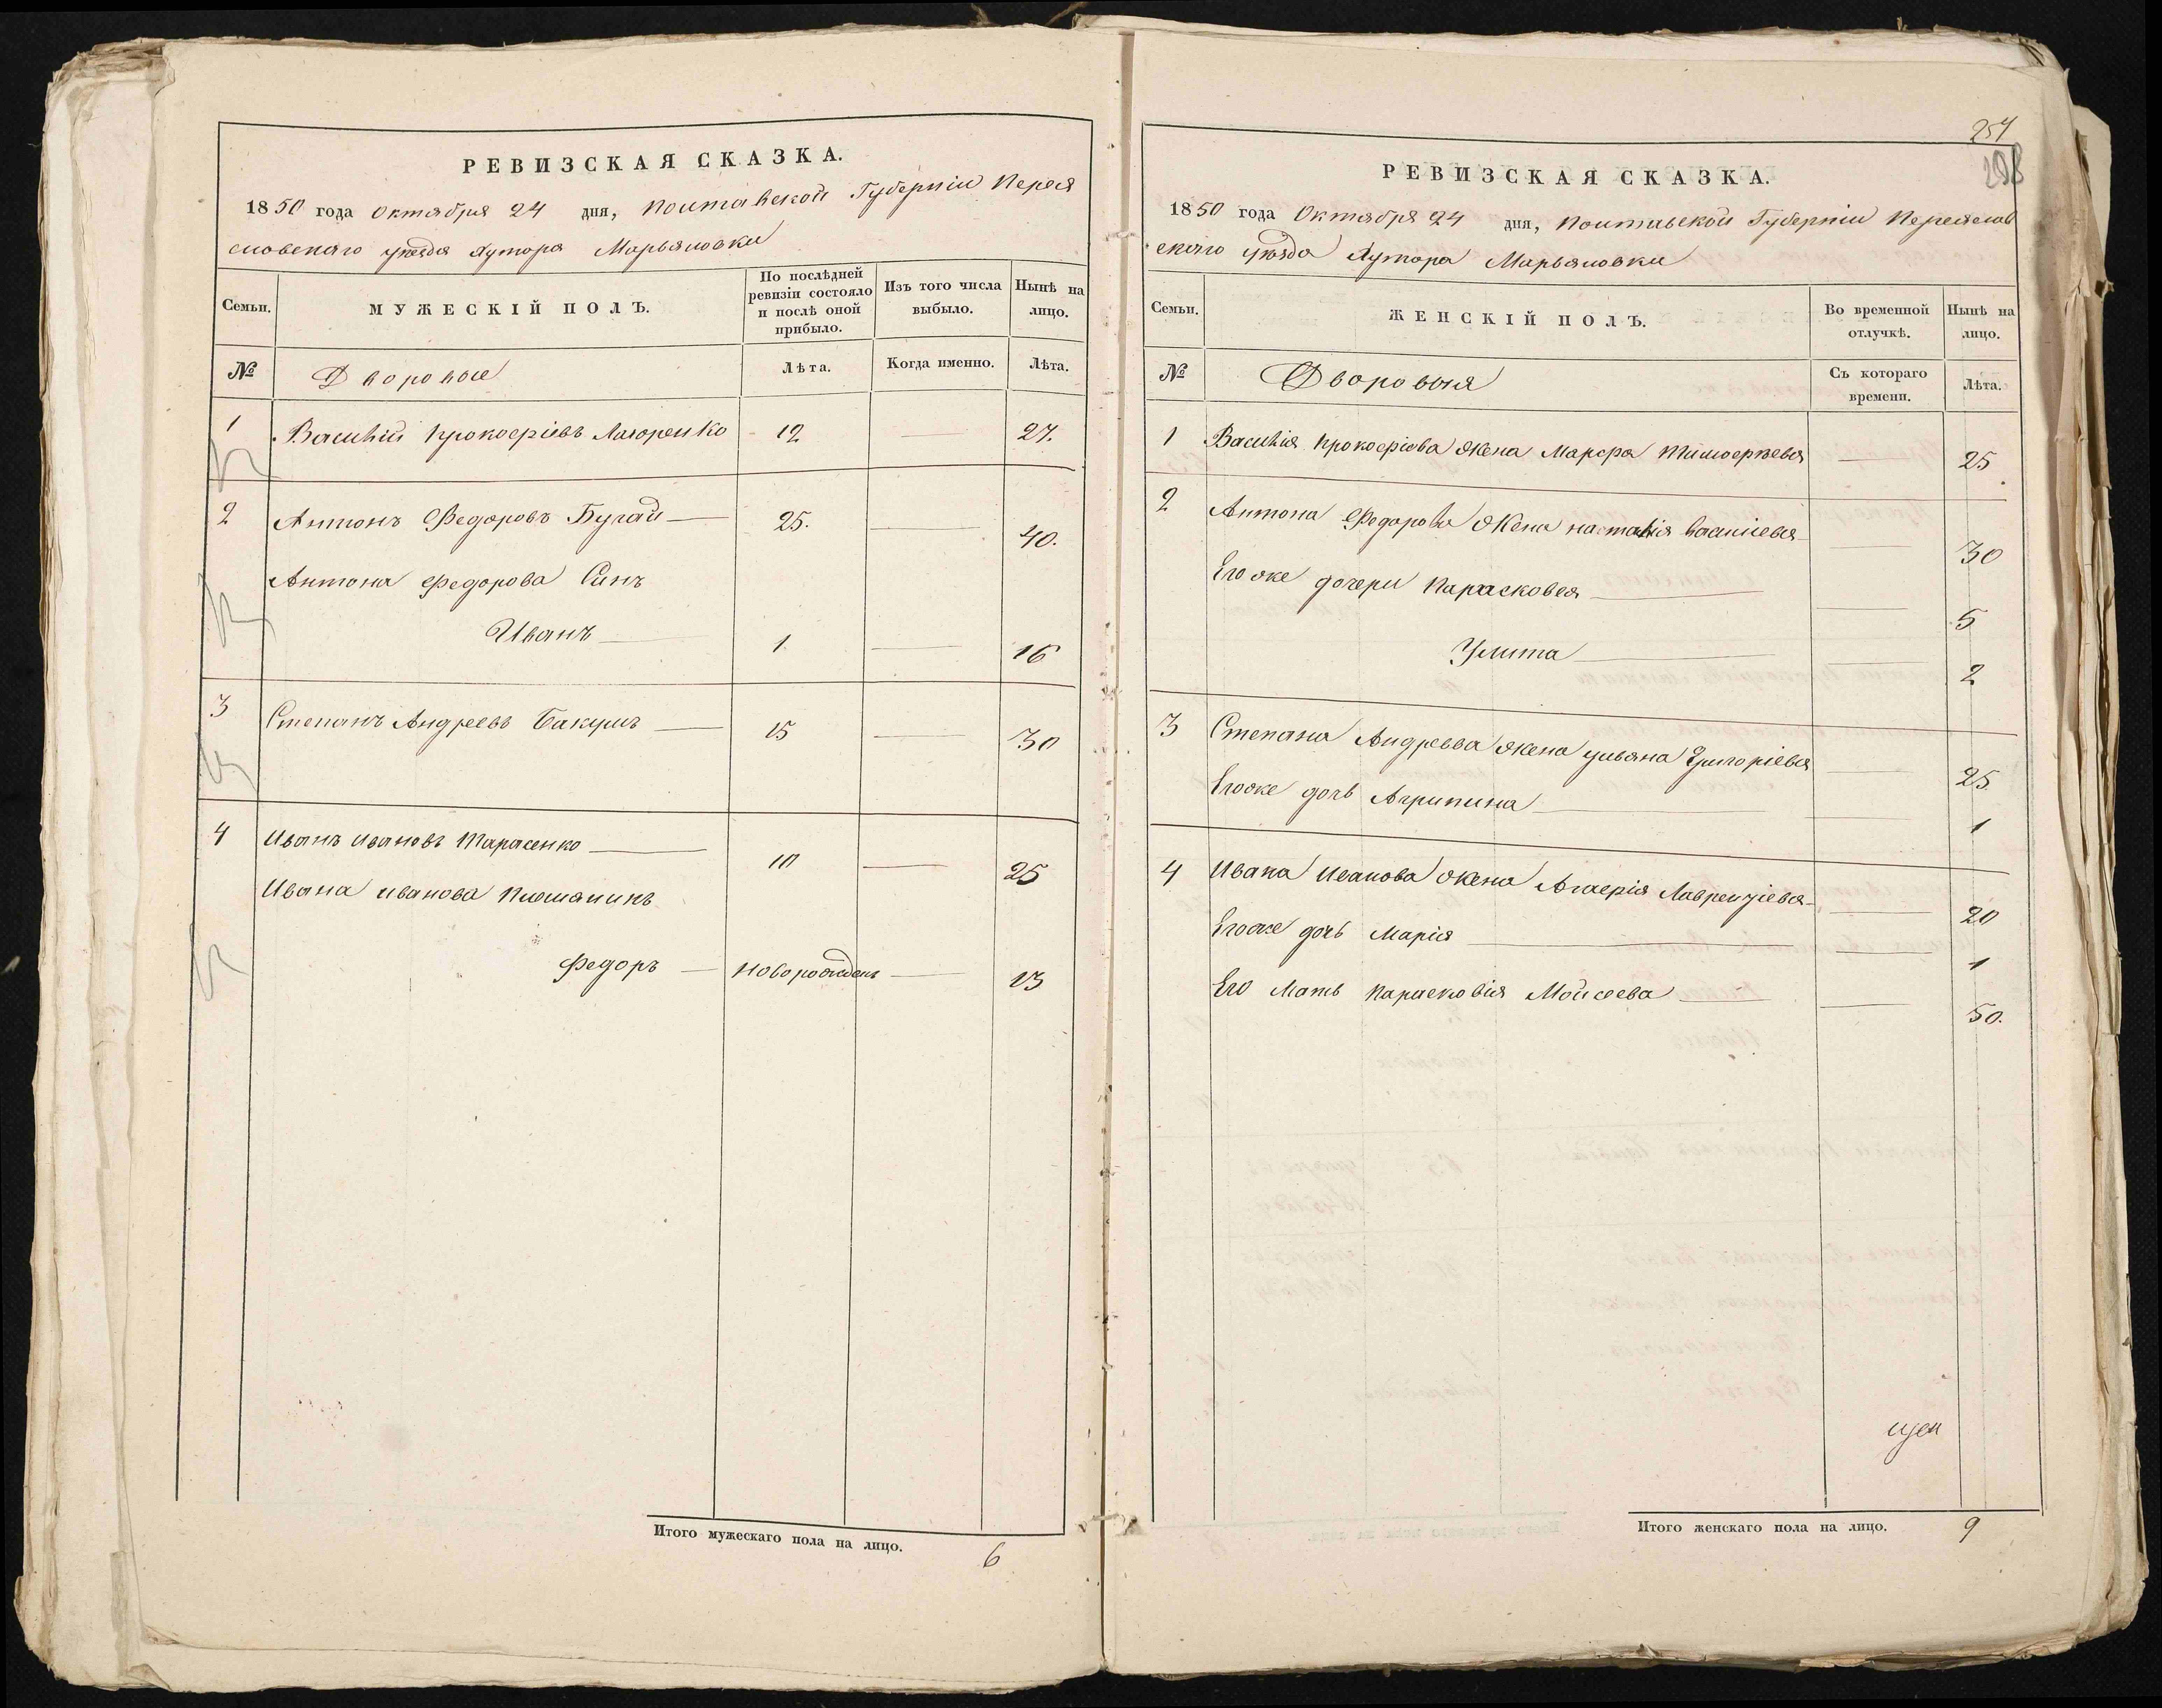 РЕВИЗСКАЯ СКАЗКА.
1850 года Октября 24 дня, Полтавской Губерніи Перея
словскаго уѣзда Хутора Марьяновки
Семьи.
МУЖЕСКІЙ ПОЛЪ.
По послѣдней ревизіи состояло и послѣ оной прибыло.
Изъ того числа выбыло.
Нынѣ на лицо.
№ Дворовые Лѣта. Когда именно. Лѣта.
1 Василій Прокофіевъ Лазоренко 12 — 27.
2 Антонъ Федоровъ Бугай — 25. — 40.
Антона Федорова Синъ
Иванъ — 1 — 16
3 Степанъ Андреевъ Бакумъ — 15 — 30
4 Иванъ Ивановъ Тарасенко — 10 — 25
Ивана Иванова Племяникъ
Федоръ — новорожденъ — 13
Итого мужескаго пола на лицо. 6
257
298
РЕВИЗСКАЯ СКАЗКА.
1850 года Октября 24 дня, Полтавской Губерніи Переяслов
скаго уѣзда Хутора Марьяновки
Семьи.
ЖЕНСКІЙ ПОЛЪ.
Во временной отлучкѣ.
Нынѣ на лицо.
№ Дворовыя Съ котораго времени. Лѣта.
1 Василія Прокофіева жена Марфа Тимофеева — 25
2 Антона Федорова жена настасія Василіева — 30
Его же дочери Парасковея — — 5
Улита — — 2
3 Степана Андреева жена ульяна Григоріева — 25
Егоже дочь Агрипина — — 1
4 Ивана Иванова жена Агафія Лаврентіева — 20
Егоже дочь Марія — — 1
Его Мать Парасковія Моисеева — — 50.
Итого женскаго пола на лицо. 9